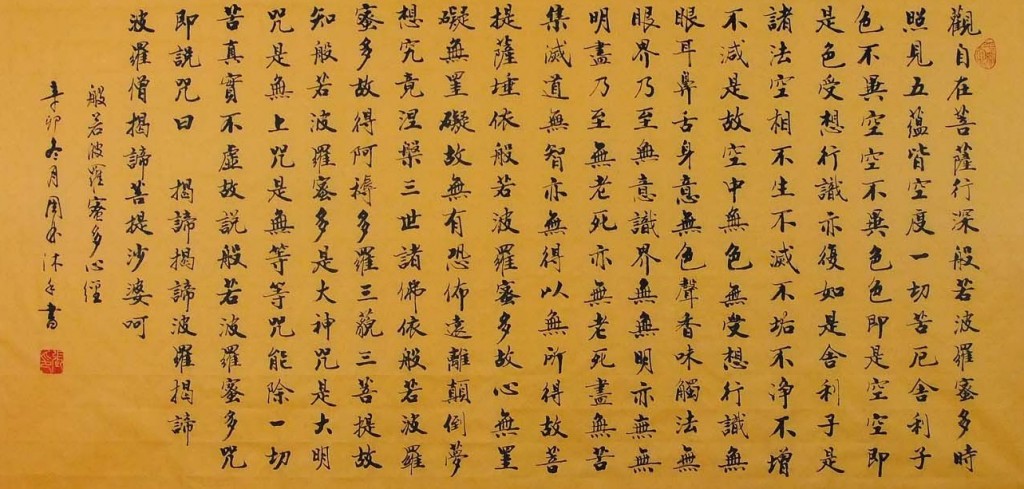 觀自在菩薩行深般若波羅蜜多時
照見五蘊皆空度一切苦厄舍利子
色不異空空不異色色即是空空即
是色受想行識亦復如是舍利子是
諸法空相不生不滅不垢不净不增
不減是故空中無色無受想行識無
眼耳鼻舌身意無色聲香味觸法無
眼界乃至無意識界無無明亦無無
明盡乃至無老死亦無老死盡無苦
集滅道無智亦無得以無所得故菩
提薩埵依般若波羅蜜多故心無罣
礙無罣礙故無有恐佈遠離顛倒夢
想究竟涅槃三世諸佛依般若波羅
蜜多故得阿耨多羅三藐三菩提故
知般若波羅蜜多是大神咒是大明
咒是無上咒是無等等咒能除一切
苦真實不虛故說般若波羅蜜多咒
即說咒曰 揭諦揭諦波羅揭諦
波羅僧揭諦菩提沙婆呵
般若波羅蜜多心經
辛卯冬月周沐手書